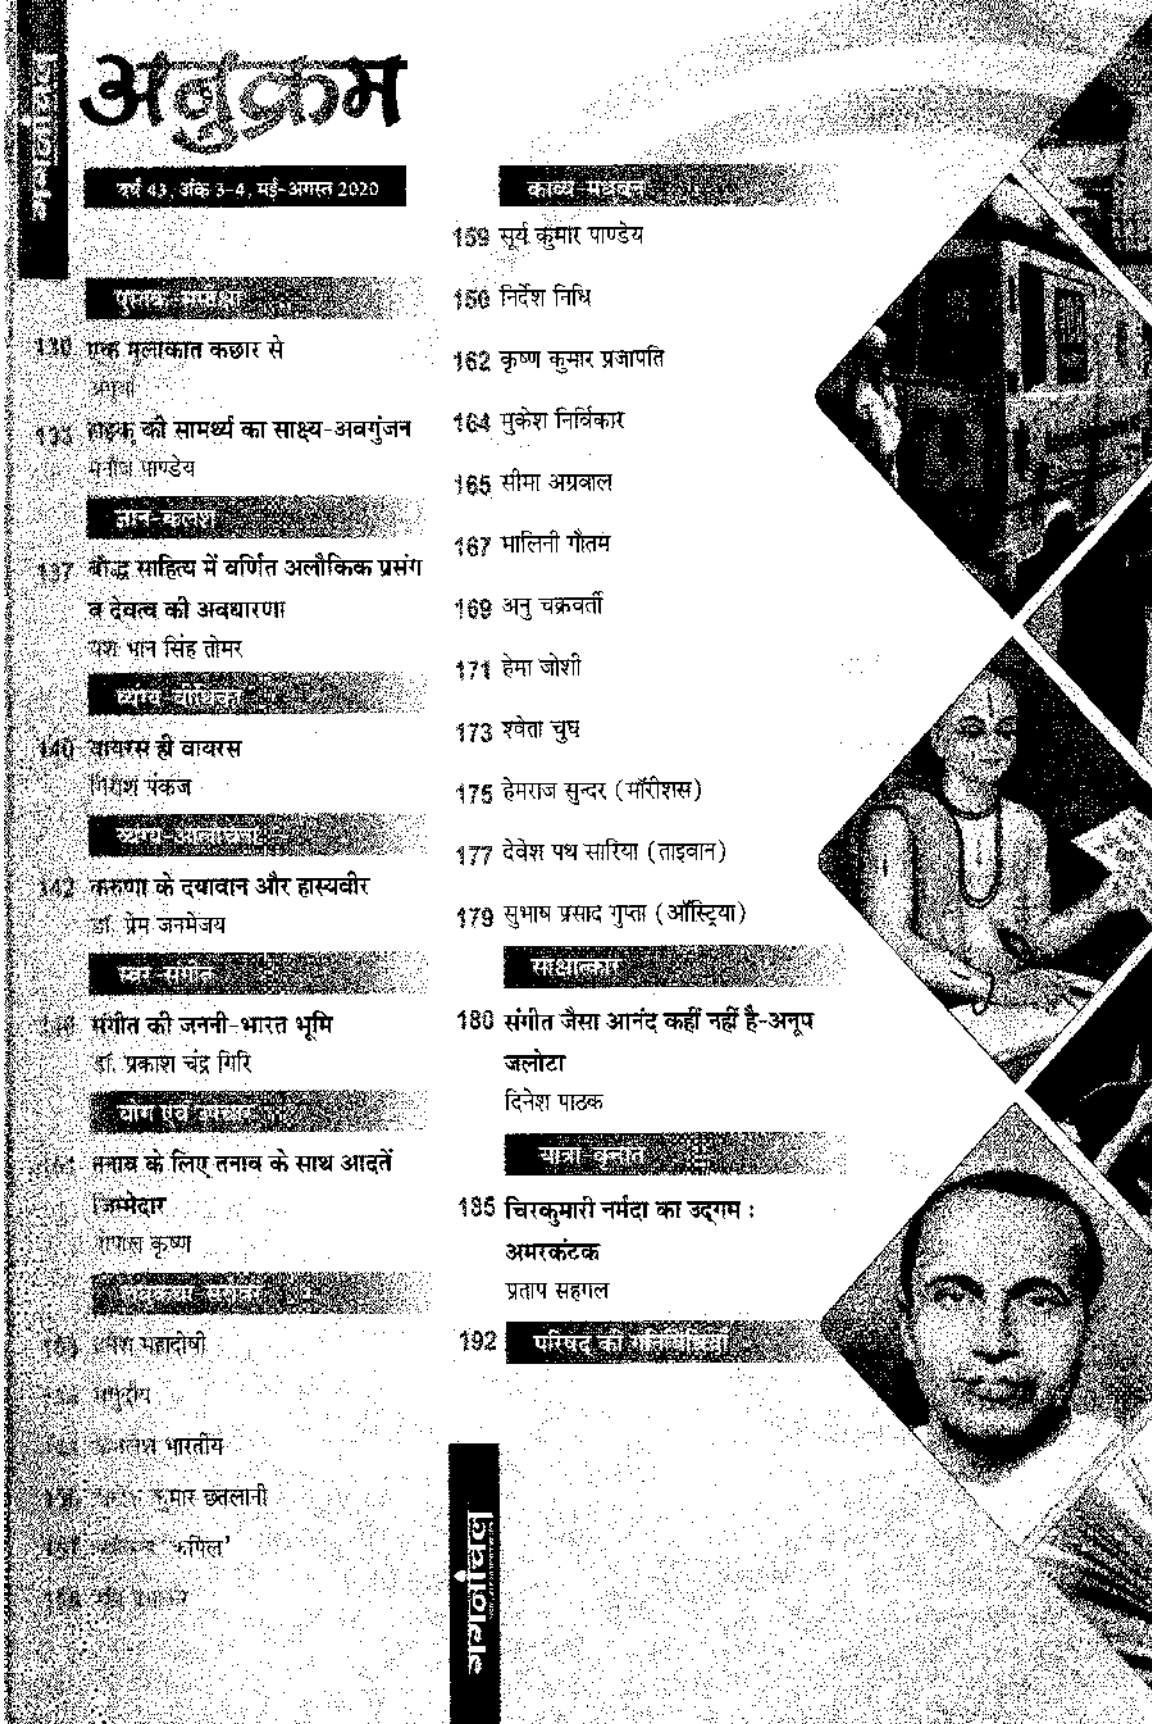 गगनांचल
अनुक्रम
वर्ष 43, अंक 3-4, मई-अगस्त 2020
पुस्तक-समीक्षा
130 एक मुलाकात कछार से
133 की सामर्थ्य का साक्ष्य-अवगुंजन
मनीष पाण्डेय
ज्ञान-कलश
137 बौद्ध साहित्य में वर्णित अलौकिक प्रसंग
व देवत्व की अवधारणा
यश भान सिंह तोमर
व्यंग्य वीथिका
140 वायरस ही वायरस
गिरीश पंकज
व्यंग्य-आलोचना
142 करुणा के दयावान और हास्यवीर
डॉ. प्रेम जनमेजय
स्वर संगीत
संगीत की जननी-भारत भूमि
डॉ. प्रकाश चंद्र गिरि
योग एवं उपचार
तनाव के लिए तनाव के साथ आदतें
जिम्मेदार
गोपाल कृष्ण
महादोषी
मधुदीप
भारतीय
कुमार छतलानी
'कपिल'
काव्य-मधुबन
159 सूर्य कुमार पाण्डेय
निर्देश निधि
162 कृष्ण कुमार प्रजापति
164 मुकेश निर्विकार
165 सीमा अग्रवाल
167 मालिनी गौतम
169 अनु चक्रवर्ती
171 हेमा जोशी
173 श्वेता चुघ
175 हेमराज सुन्दर (मॉरीशस)
177 देवेश पथ सारिया (ताइवान)
179 सुभाष प्रसाद गुप्ता (ऑस्ट्रिया)
साक्षात्कार
180 संगीत जैसा आनंद कहीं नहीं है-अनूप
जलोटा
दिनेश पाठक
यात्रा वृत्तांत
185 चिरकुमारी नर्मदा का उद्गम :
अमरकंटक
प्रताप सहगल
192 परिषद् की गतिविधियां
गगनांचल